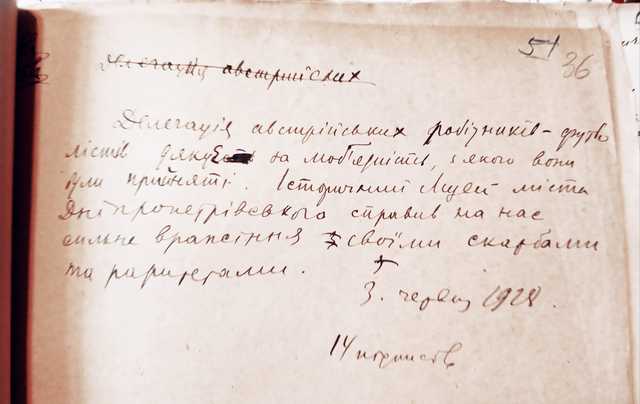 51 36
Делегація австрійских
Делегація австрійських робітників - футбо
лістів дякує за люб'язність, з якого вони
були прийняті. Історичний Музей міста
Дніпропетрівського справив на нас
сильне вражіння своїми скарбами
та раритетами.
3. червня 1928.
14 подписів